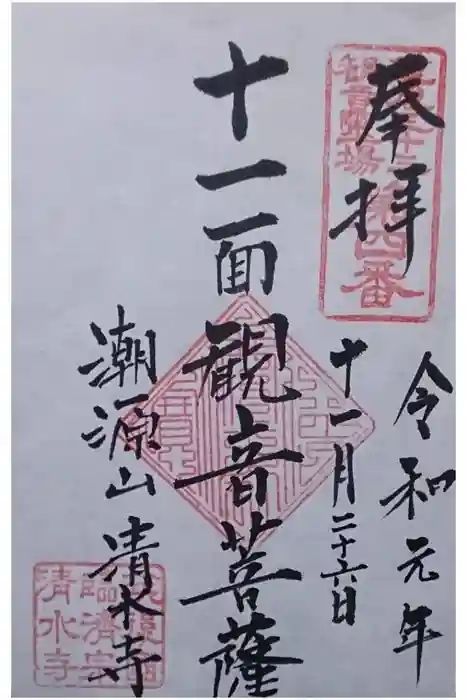 奉拝
観音霊場
第四番
令和元年
十一月二十六日
十一面観音菩薩
潮源山清水寺
臨済宗
清水寺